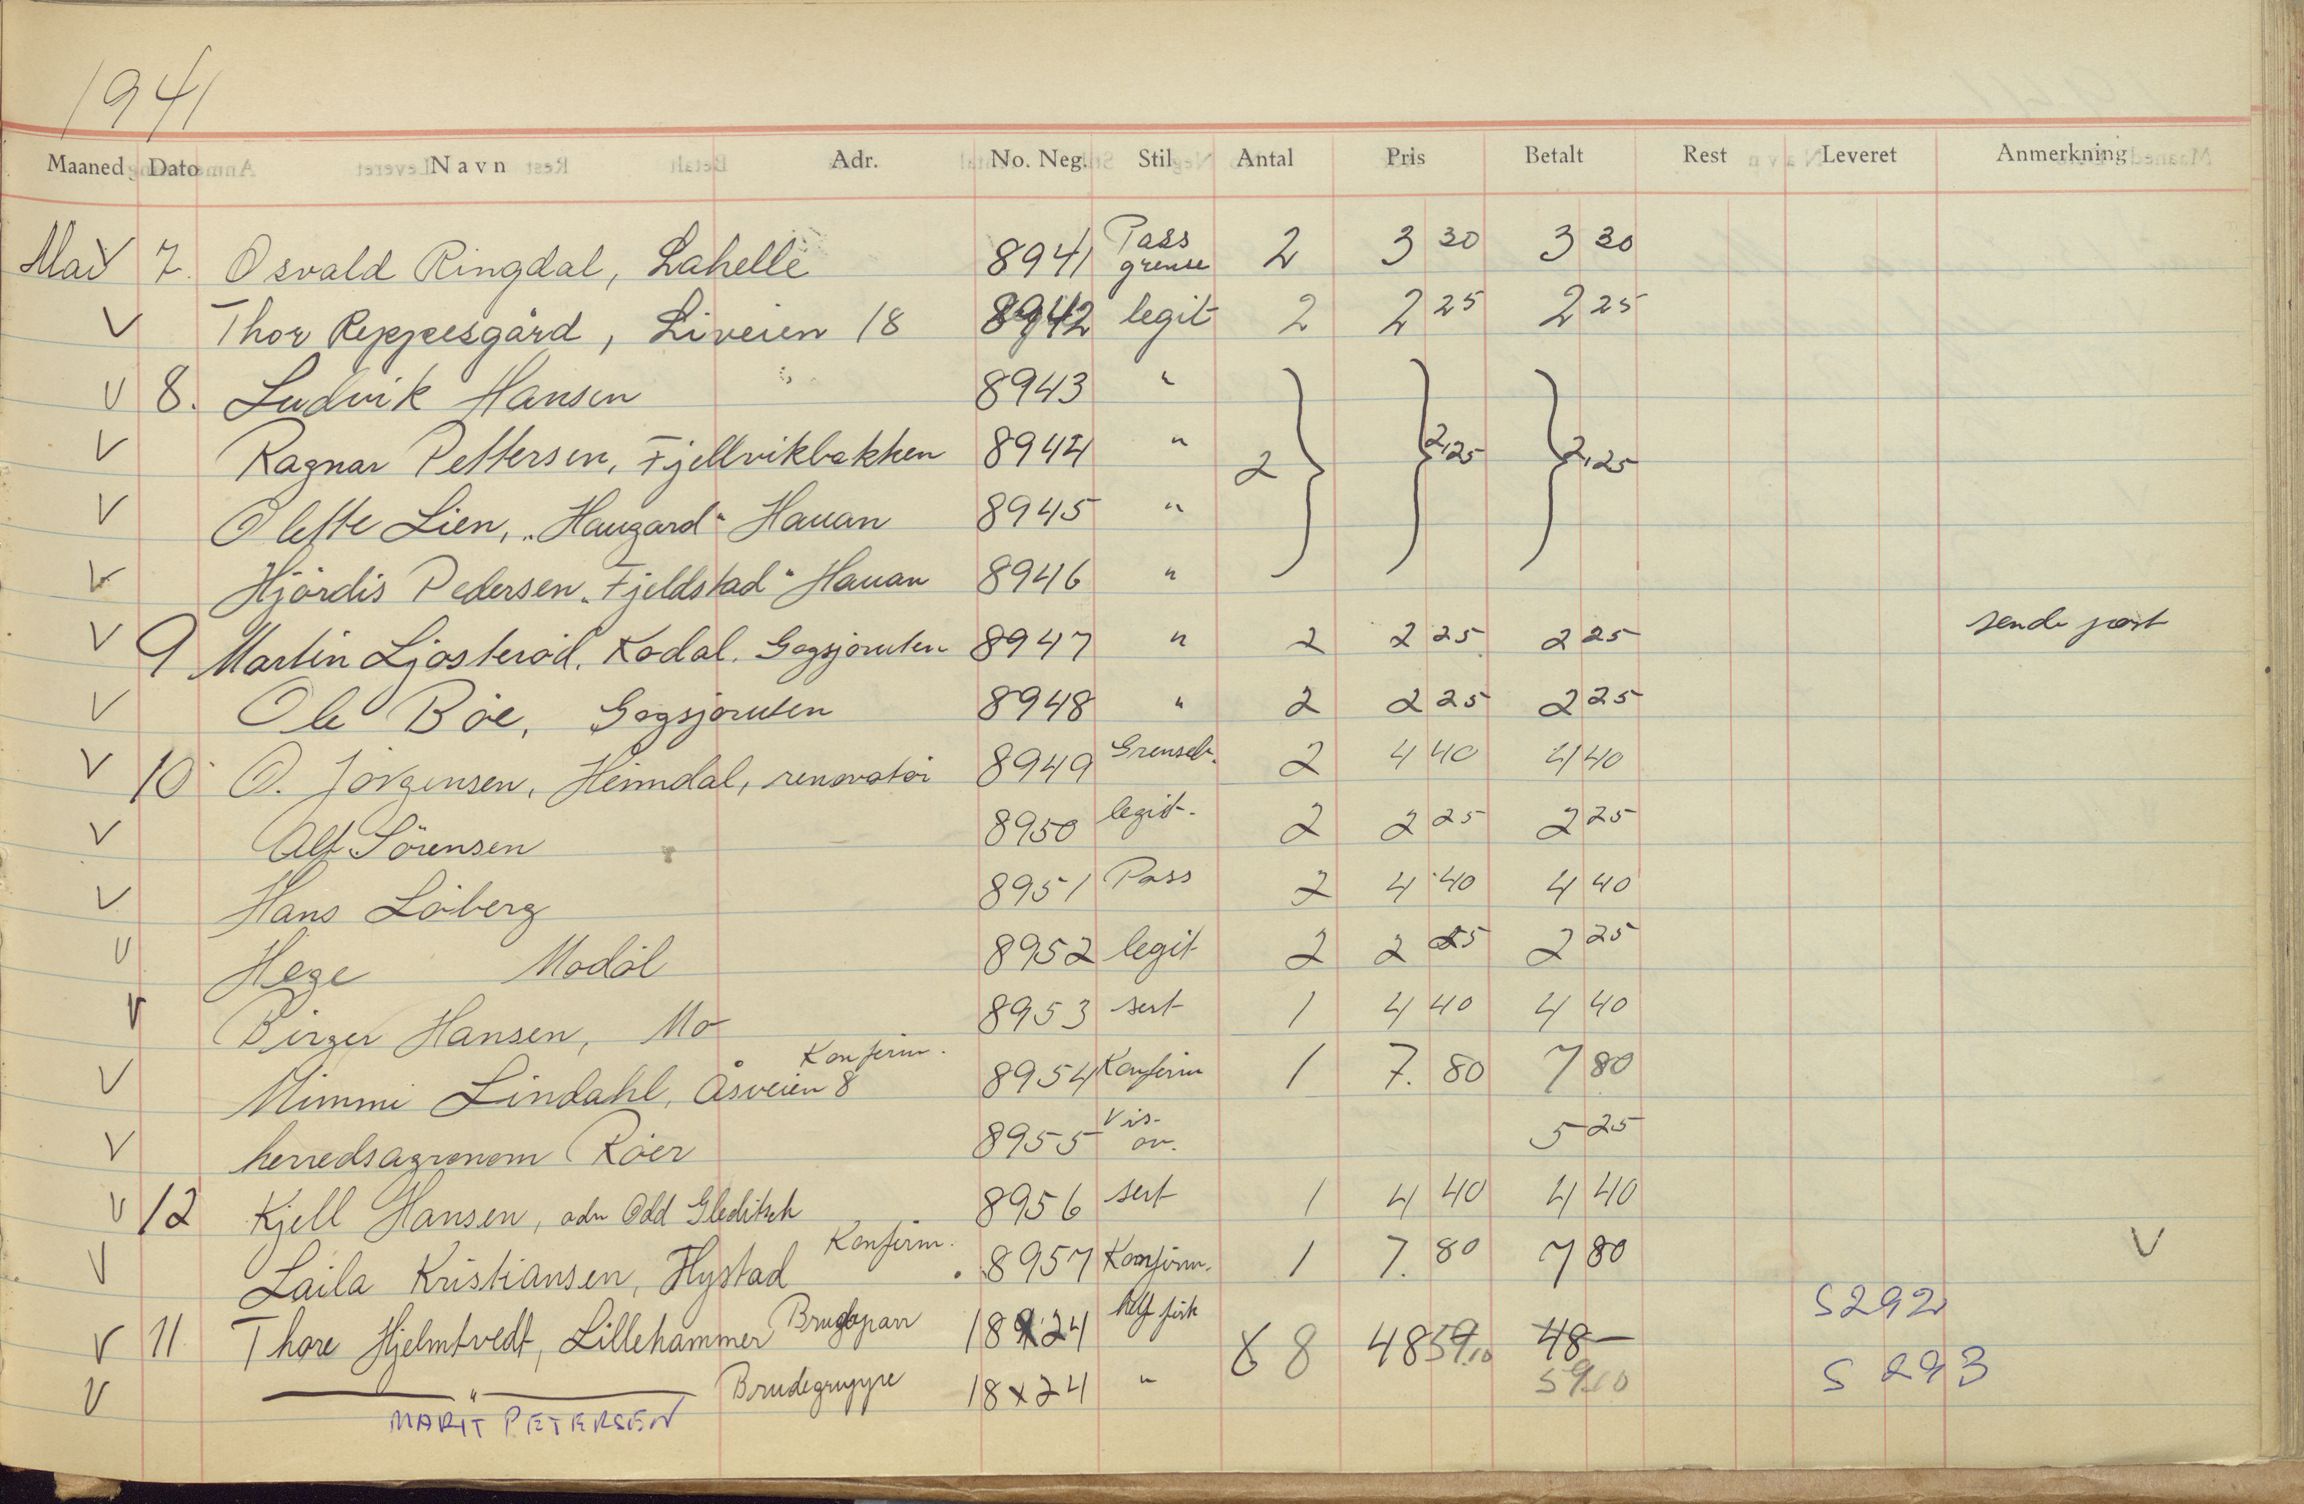 1941
Maaned Dato Navn Adr. No. Neg. Stil Antal Pris Betalt Rest Leveret Anmerkning
Mai V 7. Osvald Ringdal, Lahelle 8941 Pass grense 2 3 30 3 30
V Thor Reppesgård, Liveien 18 8942 legit 2 2 25 2 25
V 8. Ludvik Hansen 8943 "
V Ragnar Pettersen, Fjellvikbakken 8944 " 2 2,25 2,25
V Olette Lien, "Haugard" Hauan 8945 "
V Hjördis Pedersen "Fjeldstad" Hauan 8946 "
V 9 Martin Ljøsterød. Kodal. Gogsjøruten 8947 " 2 2 25 2 25 sende post
V Ole Bøe, Gogsjøruten 8948 " 2 2 25 2 25
V 10 O. Jørgensen, Heimdal, renovatør 8949 Granseb. 2 4 40 4 40
V Alf Sörensen 8950 legit. 2 2 25 2 25
V Hans Løberg 8951 Pass 2 4 40 4 40
V Hege Modøl 8952 legit 2 2 25 2 25
V Birger Hansen, Mo 8953 sert 1 4 40 4 40
V Mimmi Lindahl, Åsveien 8 Konfirm. 8954 Konfirm 1 7. 80 7 80
V herredsagronom Røer 8955 Vis. 5 25
V 12 Kjell Hansen, adr Odd Gleditsch 8956 sert 1 4 40 4 40
V Laila Kristiansen, Hystad Konfirm. 8957 Konfirm. 1 7. 80 7 80 V
V 11 Thore Hjelmtvedt, Lillehammer Brudepar 18x24 8 8 48 59.10 48- S292
V " Brudegruppe 18x24 " 59.10 S 293
MARIT PETERSEN